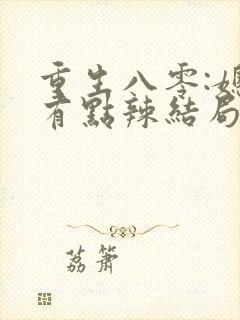 重生八零:媳
有點辣結局
荔簫